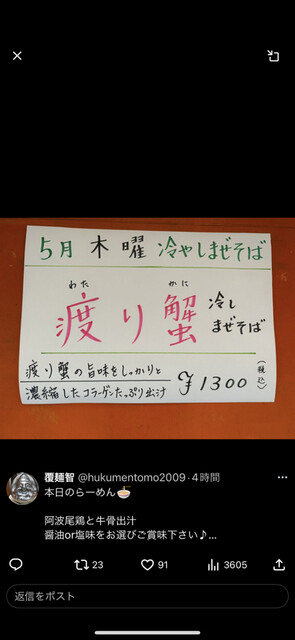 5月 木曜 冷やしまぜそば
わた かに
渡り蟹 冷し
まぜそば
渡り蟹の旨味をしっかりと
濃縮したコラーゲンたっぷり出汁
¥1300 (税込)
覆麺智 @hukumentomo2009·4時間
本日のらーめん🍜
阿波尾鶏と牛骨出汁
醤油or塩味をお選びご賞味下さい♪...
23 91 3605
返信をポスト